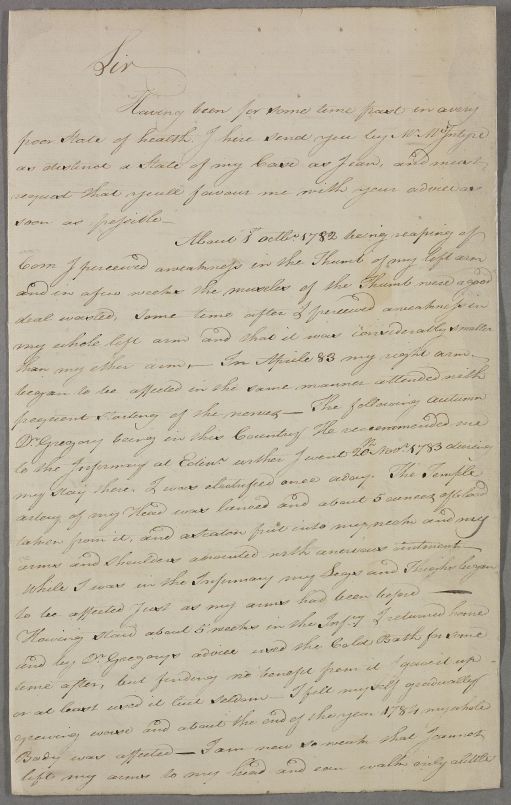 Sir
Having been for some time past in a very
poor State of health. I here send you by Mr.
as distinct a State of my Case as I can, and must
request that youll favour me with your advice as
soon as possible —
About 1st octbr. 1782 being reaping of
Corn I perceived a weakness in the Thumb of my left arm
and in a few weeks the muscles of the Thumb were a good
deal wasted, some time after I perceived a weakness in
my whole left arm and that it was considerably smaller
than my other arm, — In Aprile 83 my right arm
began to be affected in the same manner attended with
frequent starting of the nerves — The following autumn
Dr Gregory being in this Country He recommended me
to the Infirmary at Edinr. wither I went 20th Novr. 1783 during
my stay there I was electrified once a day. The Temple
artery of my Head was and about 5 ounces of blood
taken from it, and a seaton put into my neck and my
arms and shoulders anointed with a nervous ointment —
While I was in the Infirmary my Legs and Thighs began
to be affected just as my arms had been before —
Having staid about 5 weeks in the Infry I returned home
and by Dr Gregorys advice used the Cold Bath for some
time after, but finding no benefit from it I gave it up
or at least used it but seldom — I felt myself gradually
growing worse and about the end of the year 1784 my whole
Body was affected — I am now so weak that I cannot
lift my arms to my head and can walk only a little